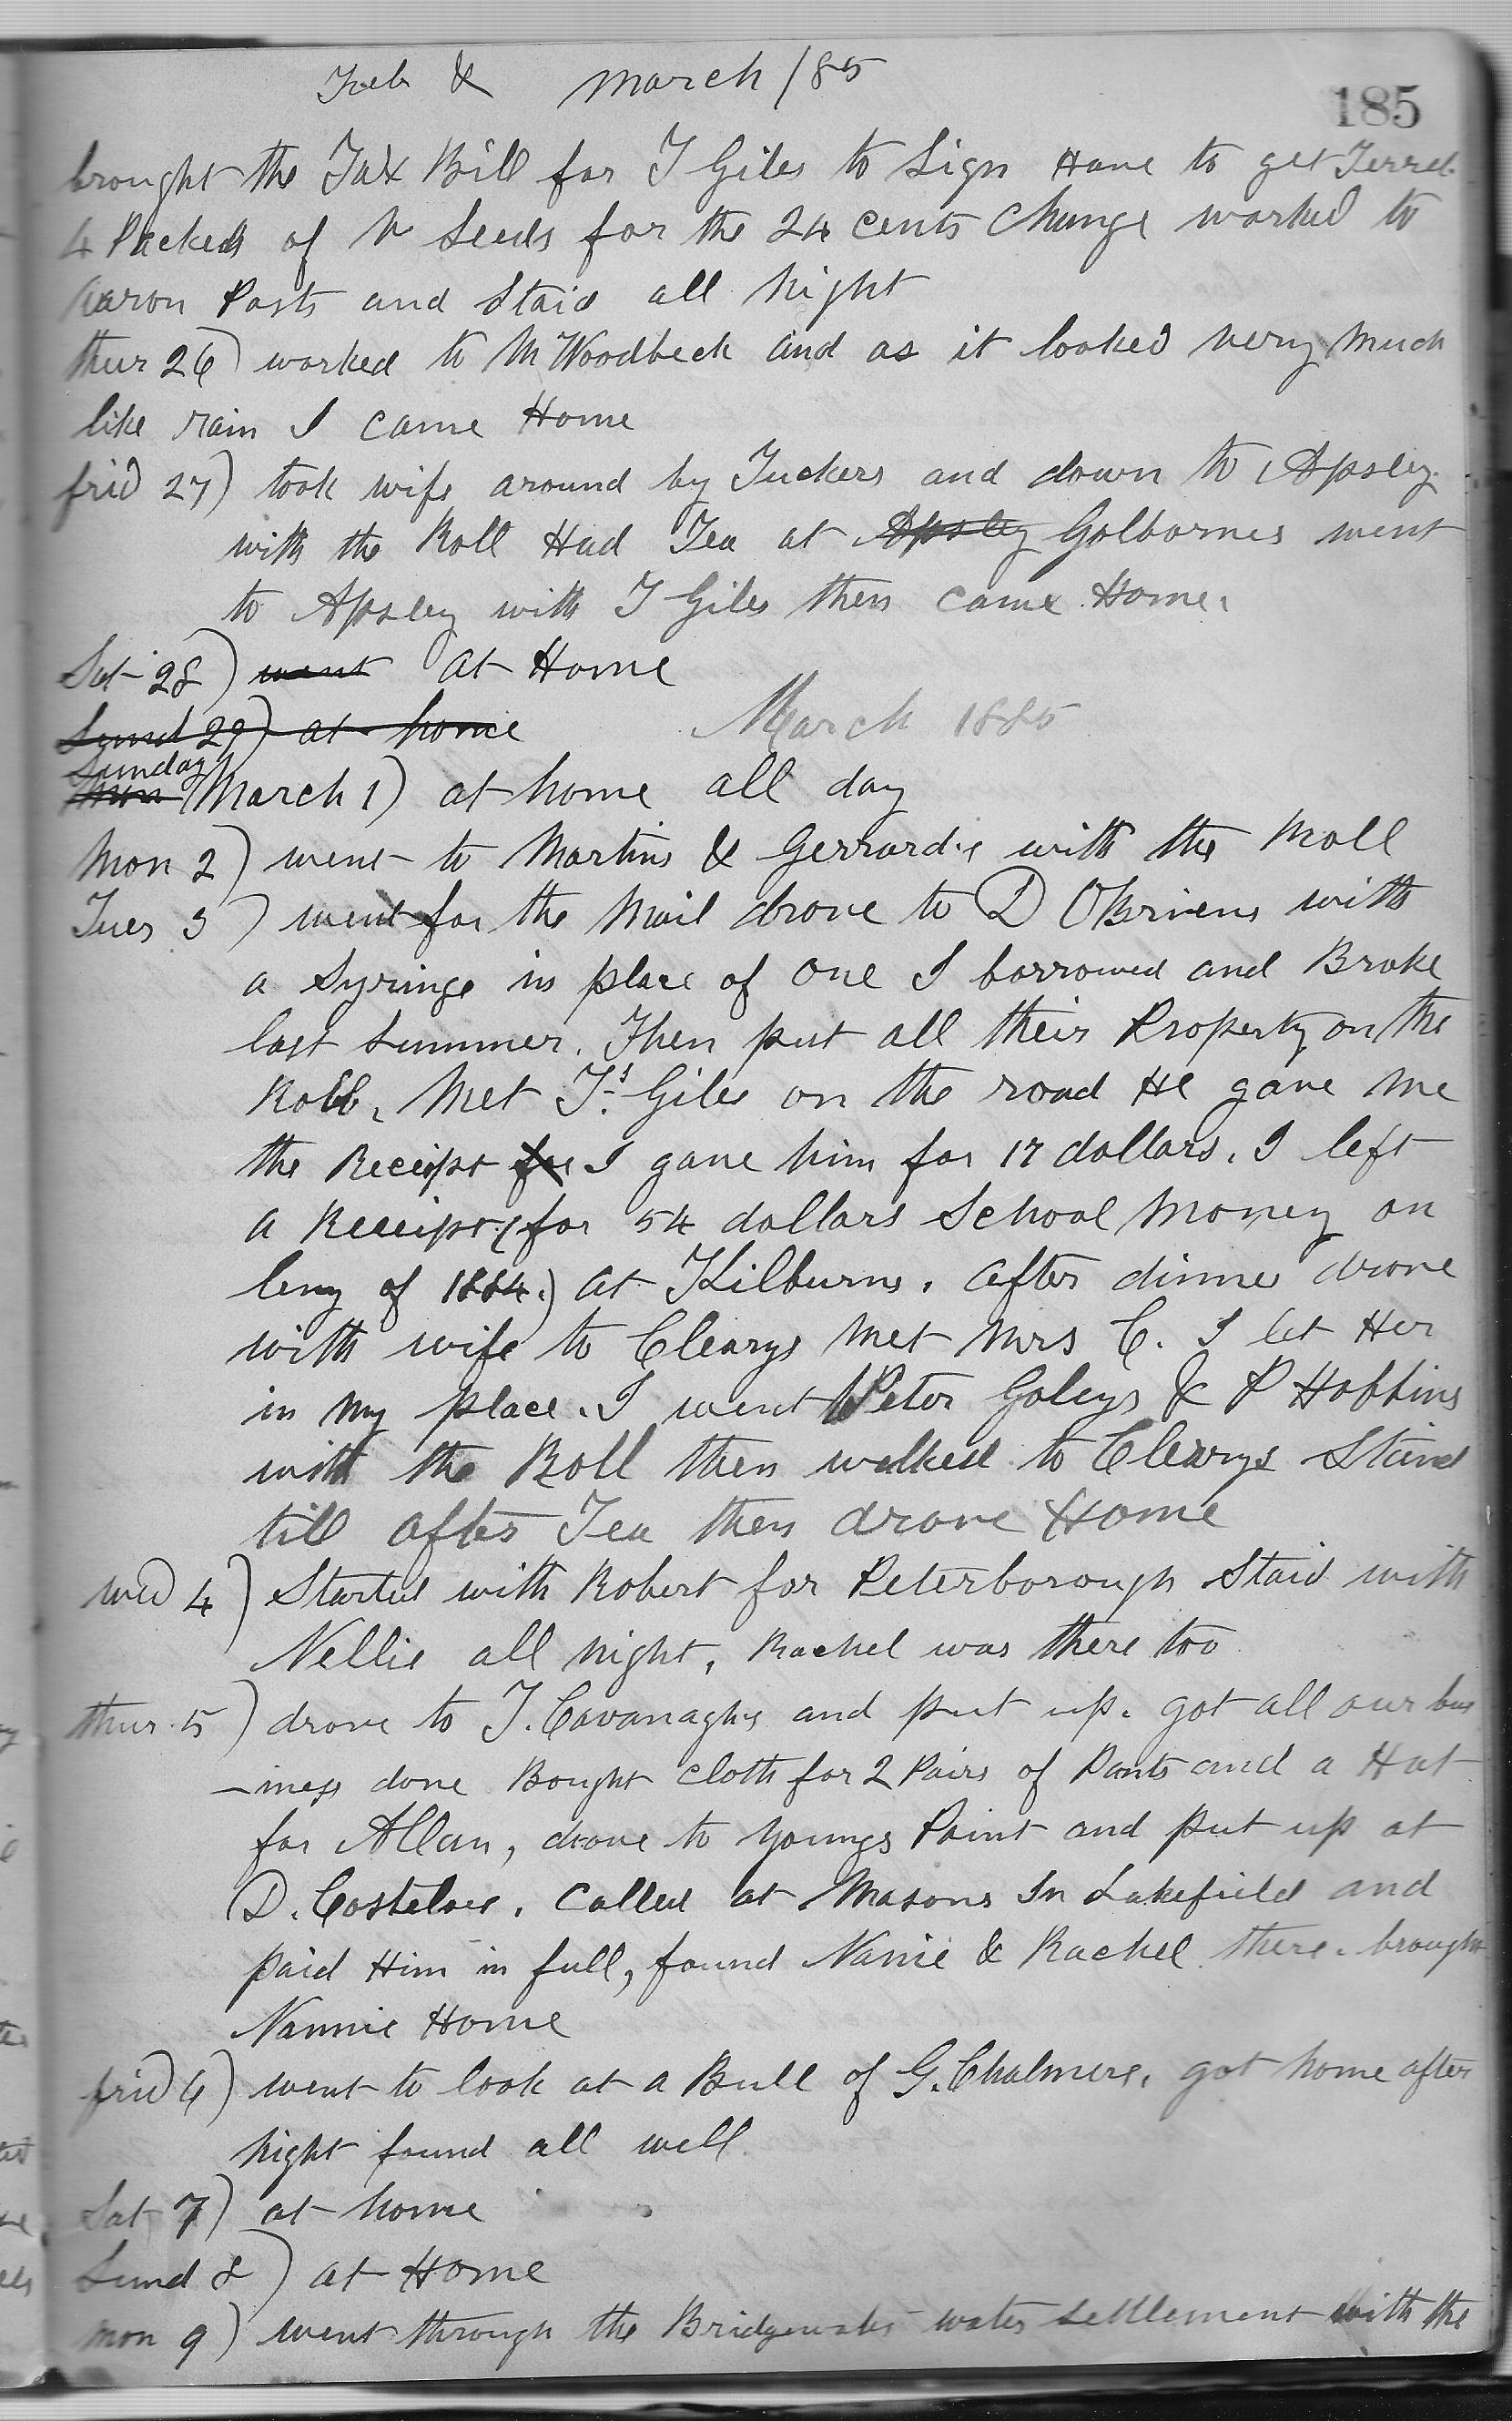 Feb & March /85
185
brought the Tax Bill for T Giles to Sign Have to get Terrel
4 Packets of Seeds for the 24 cents Change worked to
Aaron Posts and Staid all Night
thur 26) worked to M Woodbeck and as it looked very Much
like rain I came Home
frid 27) took wife around by Tuckers and down to Apsley
with the Roll Had Tea at Apsley Golbornes went
to Apsley with T Giles then came Home.
Sat 28) went at Home
Sund 29) at home March 1885
Sunday
Mon March 1) at home all day
Mon 2) went to Martins & Gerrardie with the Roll
Tues 3) went for the Mail drove to D OBriens with
a Syringe in place of one I borrowed and Broke
last Summer. Then put all their Property on the
Roll, Met Ts. Giles on the road He gave me
the Receipt for I gave him for 17 dollars. I left
a Receipt (for 54 dollars School Money on
levy of 1884.) at Kilburns. after dinner drove
with wife to Clearys Met Mrs C. I let Her
in my place. I went Peter Goleys & P Hobbins
with the Roll then walked to Clearys Staid
till after Tea then drove Home
wed 4) Started with Robert for Peterborough Staid with
Nellie all night, Rachel was there too
thur 5) drove to J. Cavanaghs and put up. got all our bus
-iness done Bought cloth for 2 Pairs of Pants and a Hat
for Allan, drove to Youngs Point and put up at
D. Costeloes. Called at Masons In Lakefield and
paid Him in full, found Nanie & Rachel there. brought
Nannie Home
frid 6) went to look at a Bull of G. Chalmers, got home after
night found all well.
Sat 7) at home
Sund 8) at Home
Mon 9) went through the Bridgewater water settlement with the